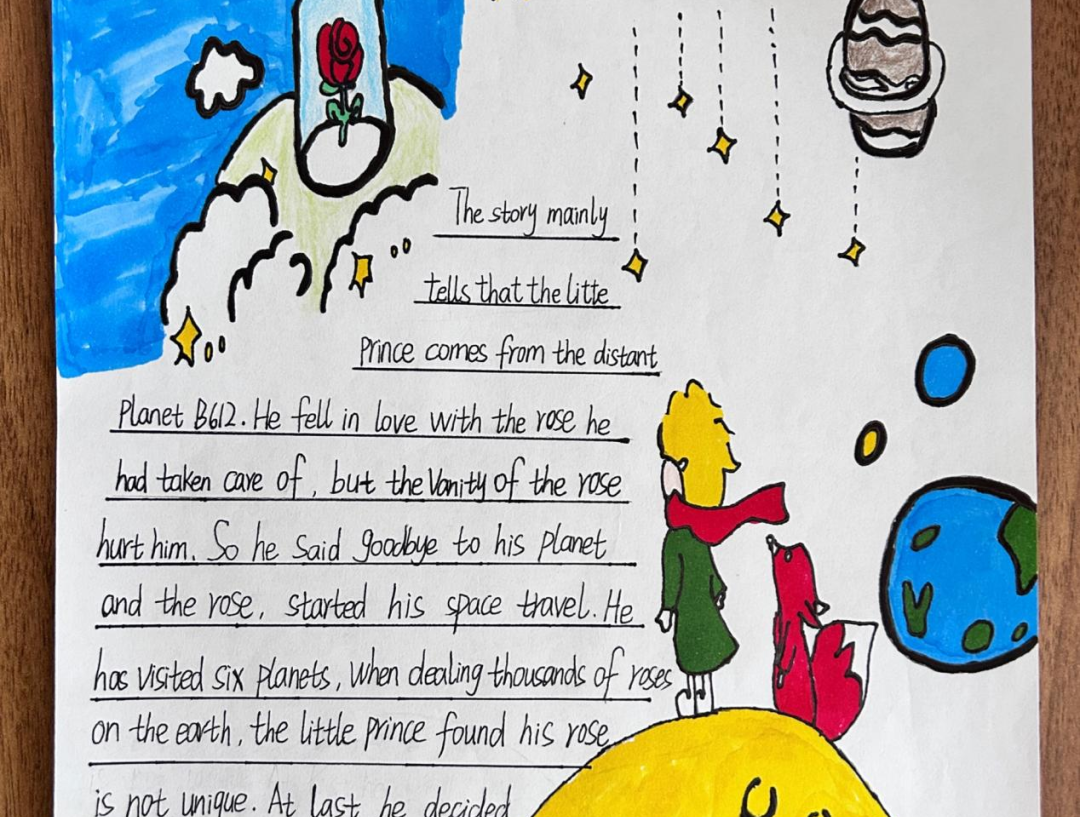 The story mainly
tells that the litte
Prince comes from the distant
Planet B612. He fell in love with the rose he
had taken care of, but the Vanity of the rose
hurt him. So he said goodbye to his planet
and the rose, started his space travel. He
has visited six planets, when dealing thousands of roses
on the earth, the little prince found his rose
is not unique. At last he decided